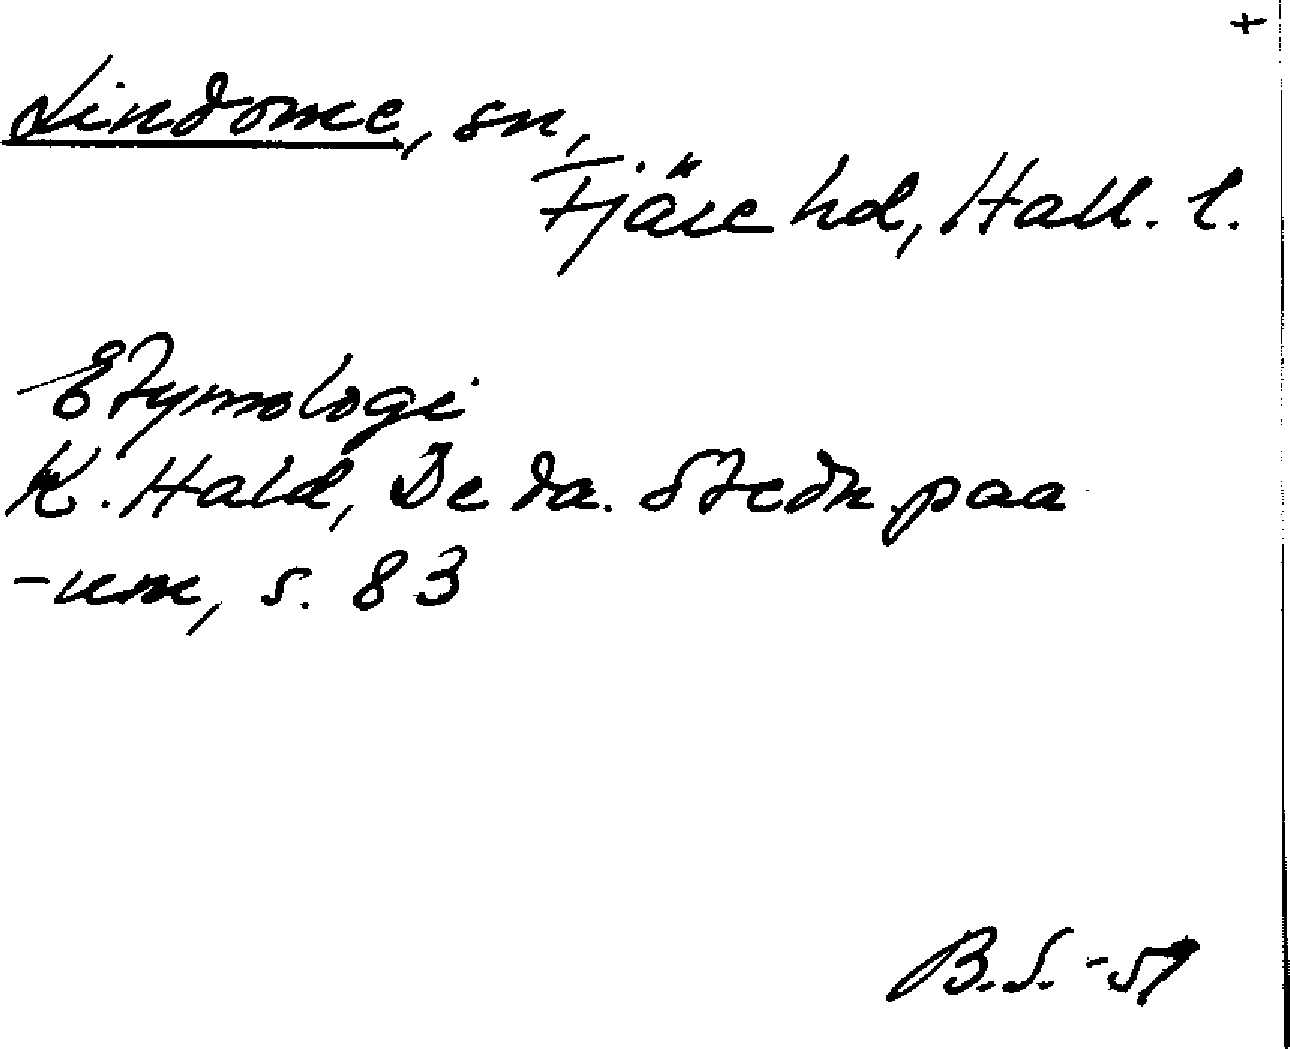 +
Lindome, sn,
Fjäre hd, Hall. l.
Etymologi
K. Hald, De da. Stedn. paa
-um, s. 83
B.S. -57